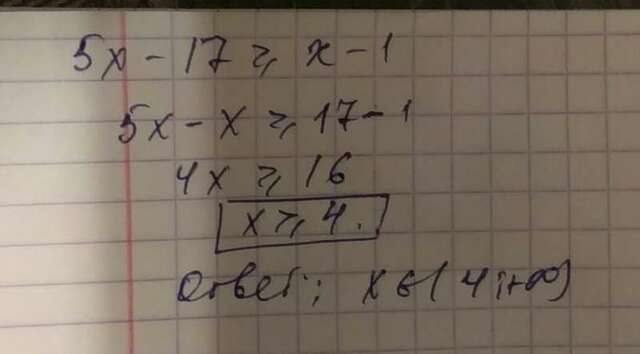 5x - 17 ⩾ x - 1
5x - x ⩾ 17 - 1
4x ⩾ 16
x ⩾ 4.
Ответ: x ∈ ( 4 ; +∞)